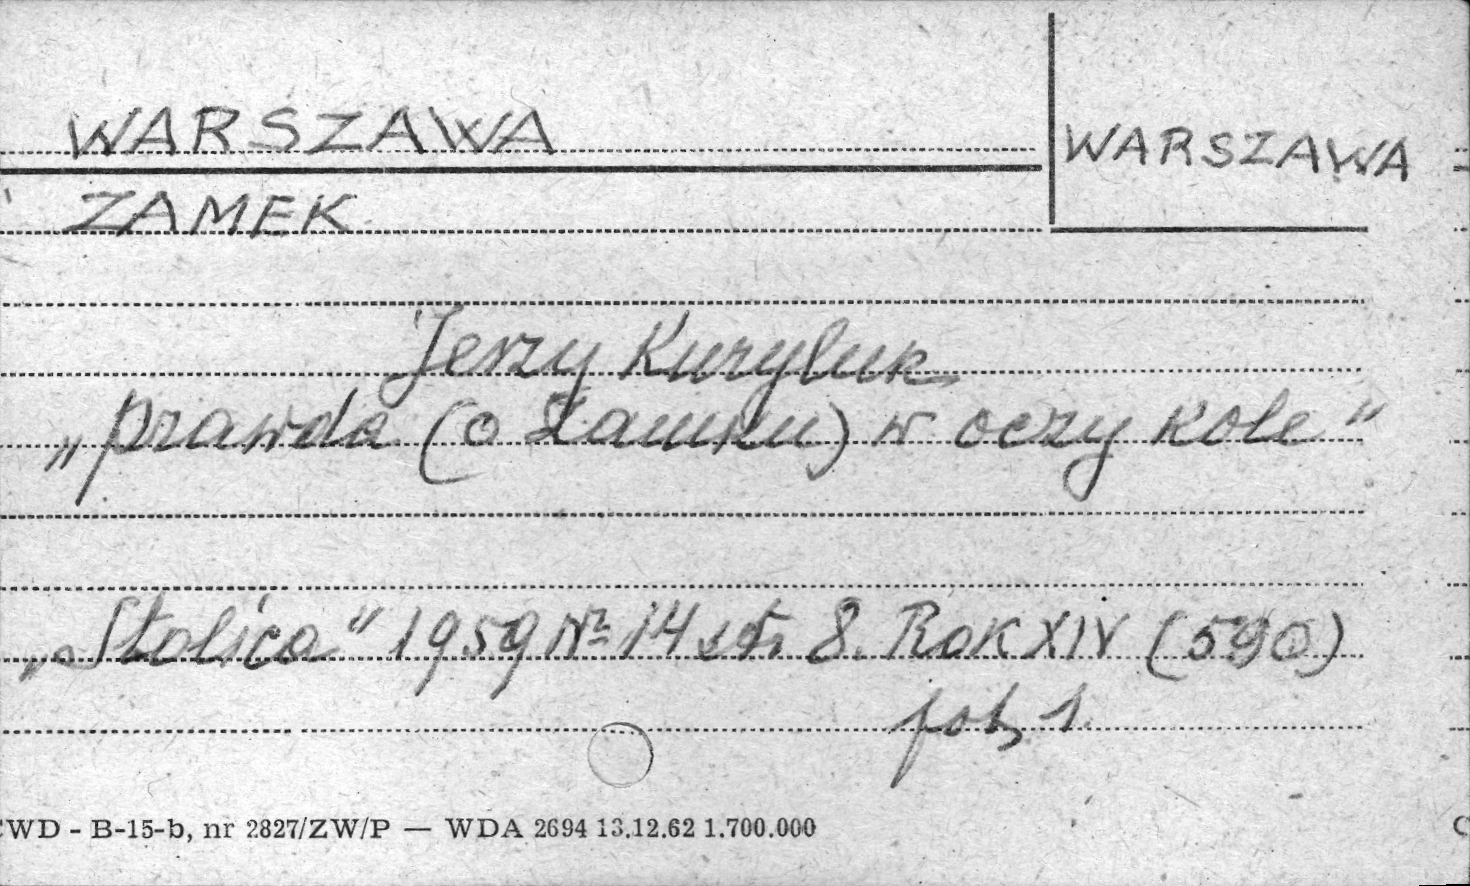 WARSZAWA
WARSZAWA
ZAMEK
Jerzy Kuryluk
„Prawda (o Zamku) w oczy kole“
„Stolica“ 1959 № 14 str. 8. Rok XIV (590)
fot. 1.
CWD - B-15-b, nr 2827/ZW/P — WDA 2694 13.12.62 1.700.000
C